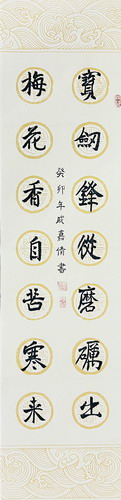 寶劒鋒從磨礪出
梅花香自苦寒来
癸卯年成嘉倩書